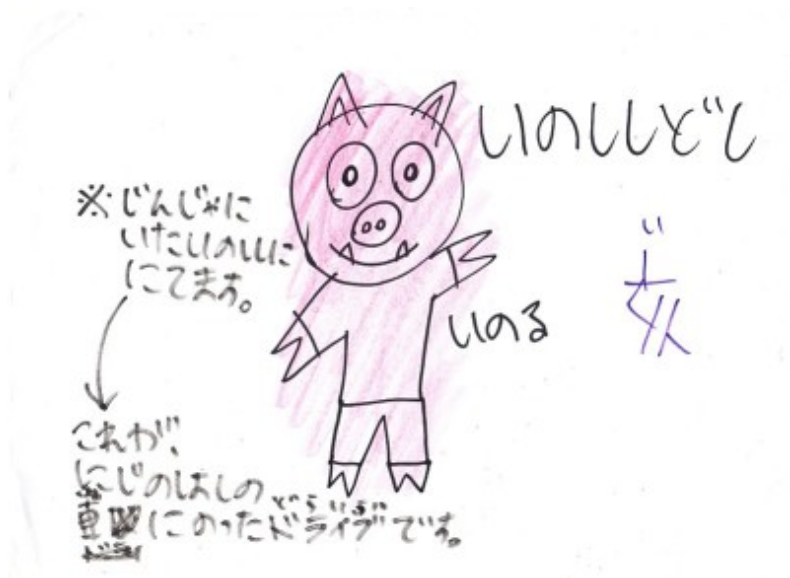 いのししどし
※じんじゃに
いたいのししに
にてます。
いのる
これが、
にじのはしの
車にのったドライブです。
どらいぶ